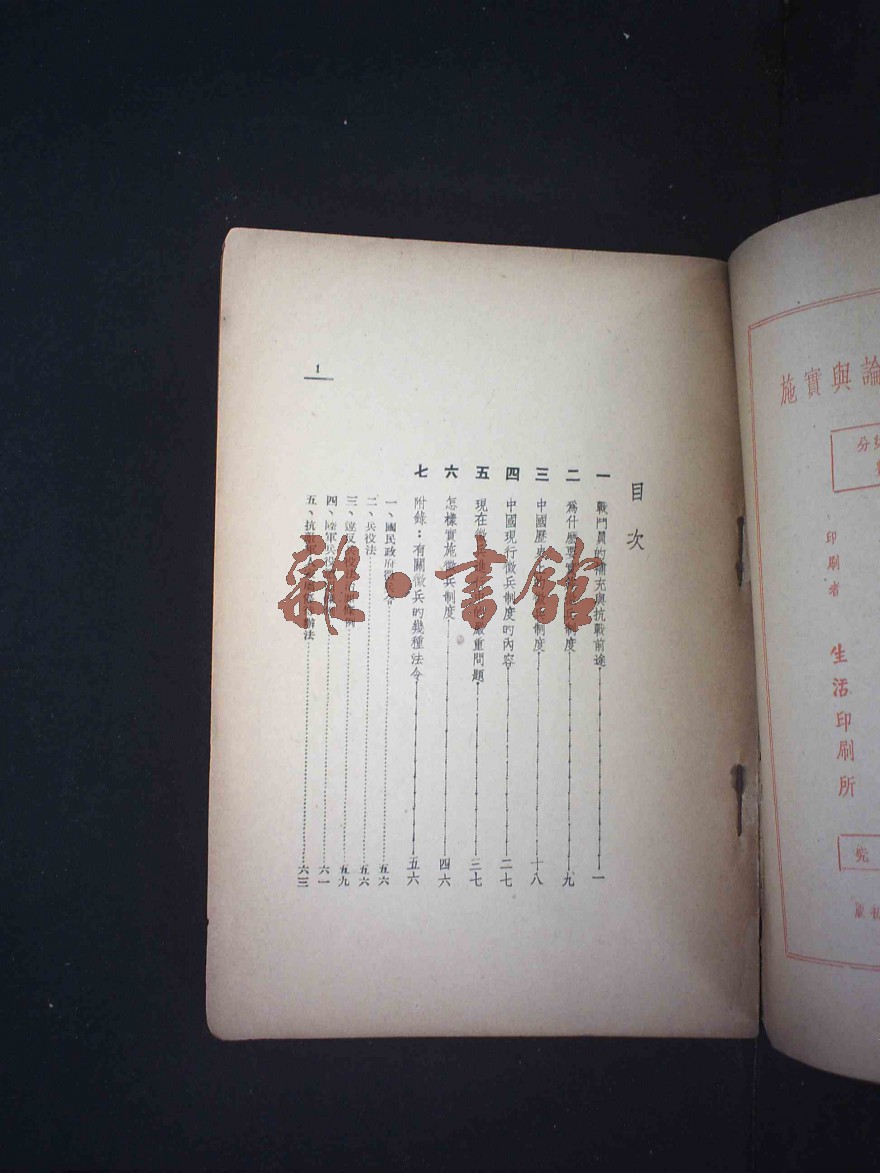 論與實施
印刷者
生活印刷所
目次
一 戰鬥員的補充與抗戰前途 一
二 為什麼要實 制度 九
三 中國歷史上的 制度 十八
四 中國現行徵兵制度的內容 二七
五 現在徵兵 嚴重問題 三七
六 怎樣實施徵兵制度 四六
七 附錄：有關徵兵的幾種法令 五六
一、國民政府 令 五六
二、兵役法 五六
三、違反 條例 五九
四、陸軍兵役 六一
五、抗 辦法 六三
1
雜·書館